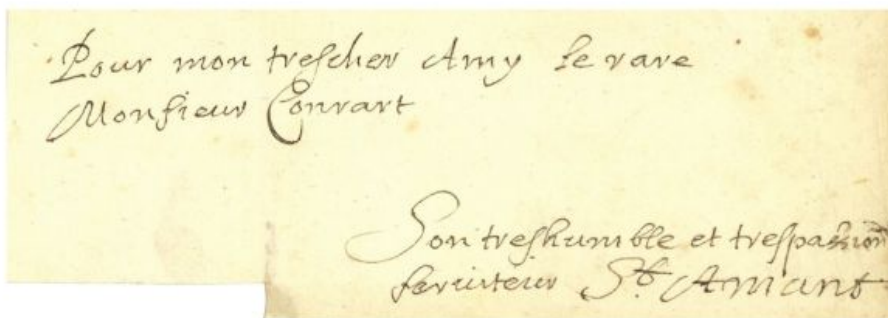 Pour mon trescher Amy le rare
Monsieur Conrart
Son treshumble et trespassionné
serviteur St. Amant